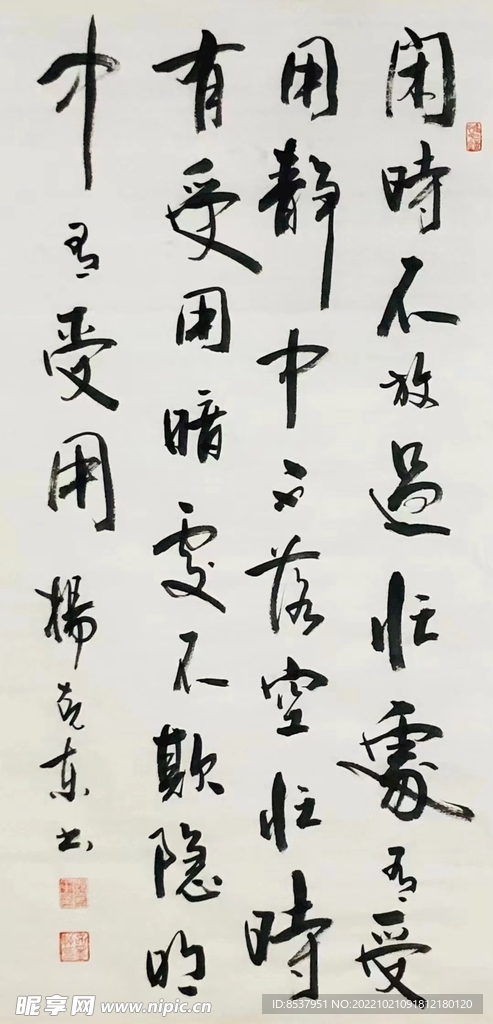 閑時不放過忙處有受
用靜中不落空忙時
有受用暗處不欺隱明
中有受用 楊克東书
昵享网 www.nipic.cn
ID:8537951 NO:20221021091812180120